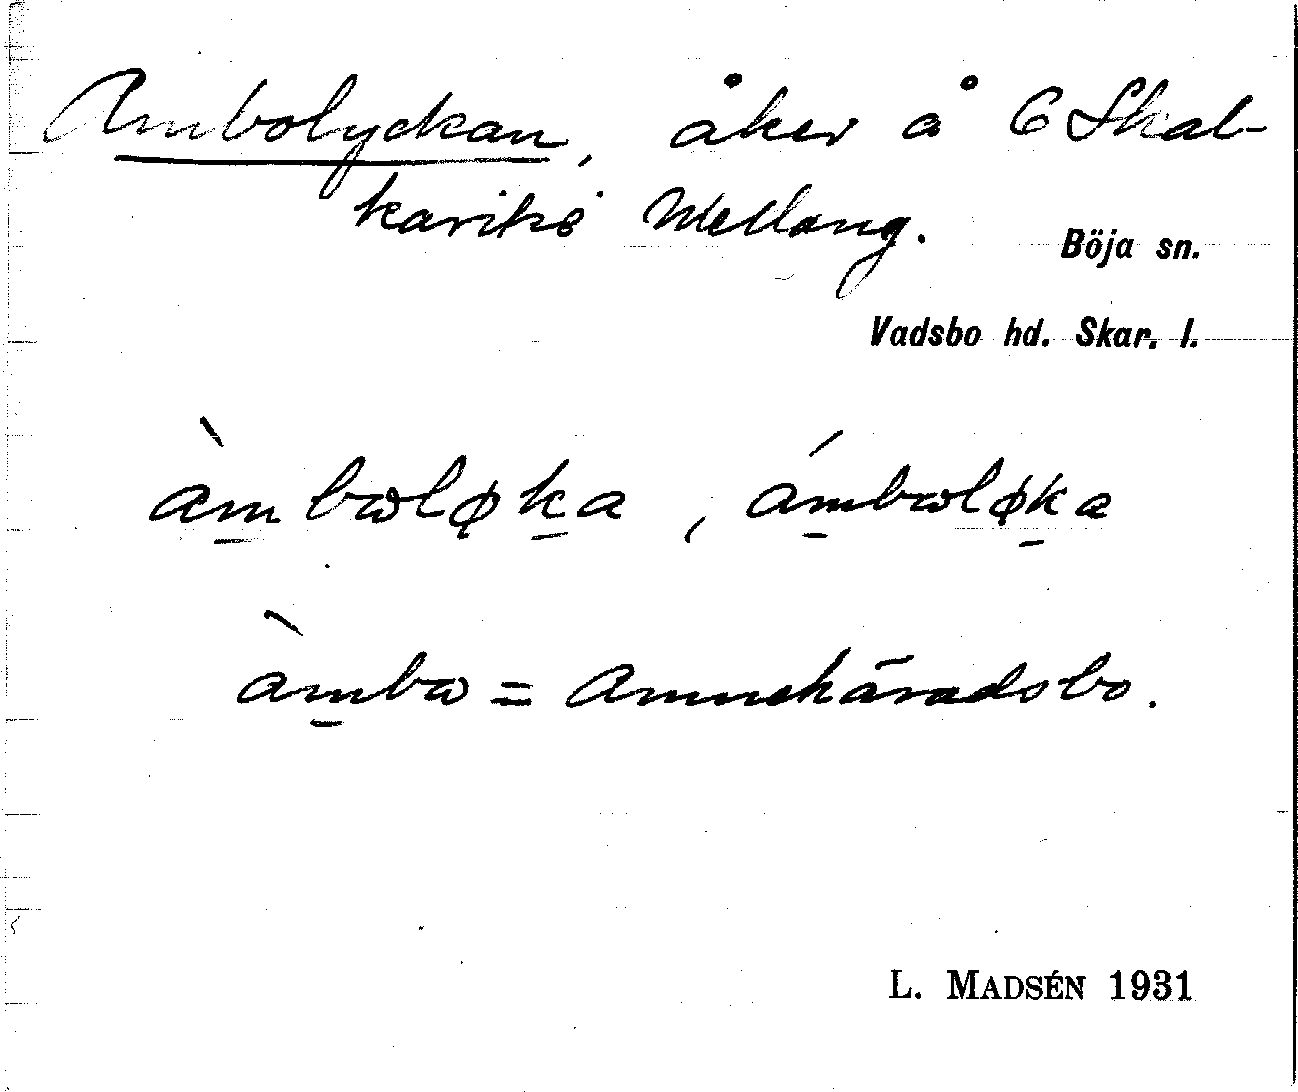 Ambolyckan, åker å 6 Skal-
karikē Mellang.
Böja sn.
Vadsbo hd. Skar. l.
àmbωløka, ámbωløka
àmbω = Amnehäradsbo.
L. MADSÉN 1931